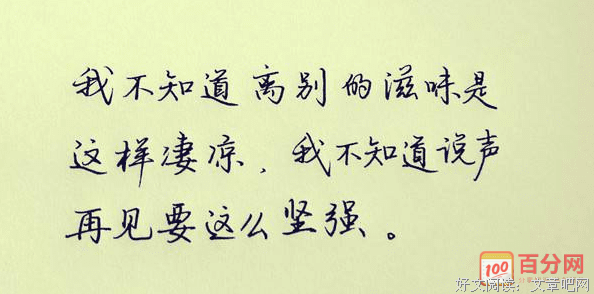 我不知道离别的滋味是
这样凄凉，我不知道说声
再见要这么坚强。
100 百分网
好文阅读：文章吧网